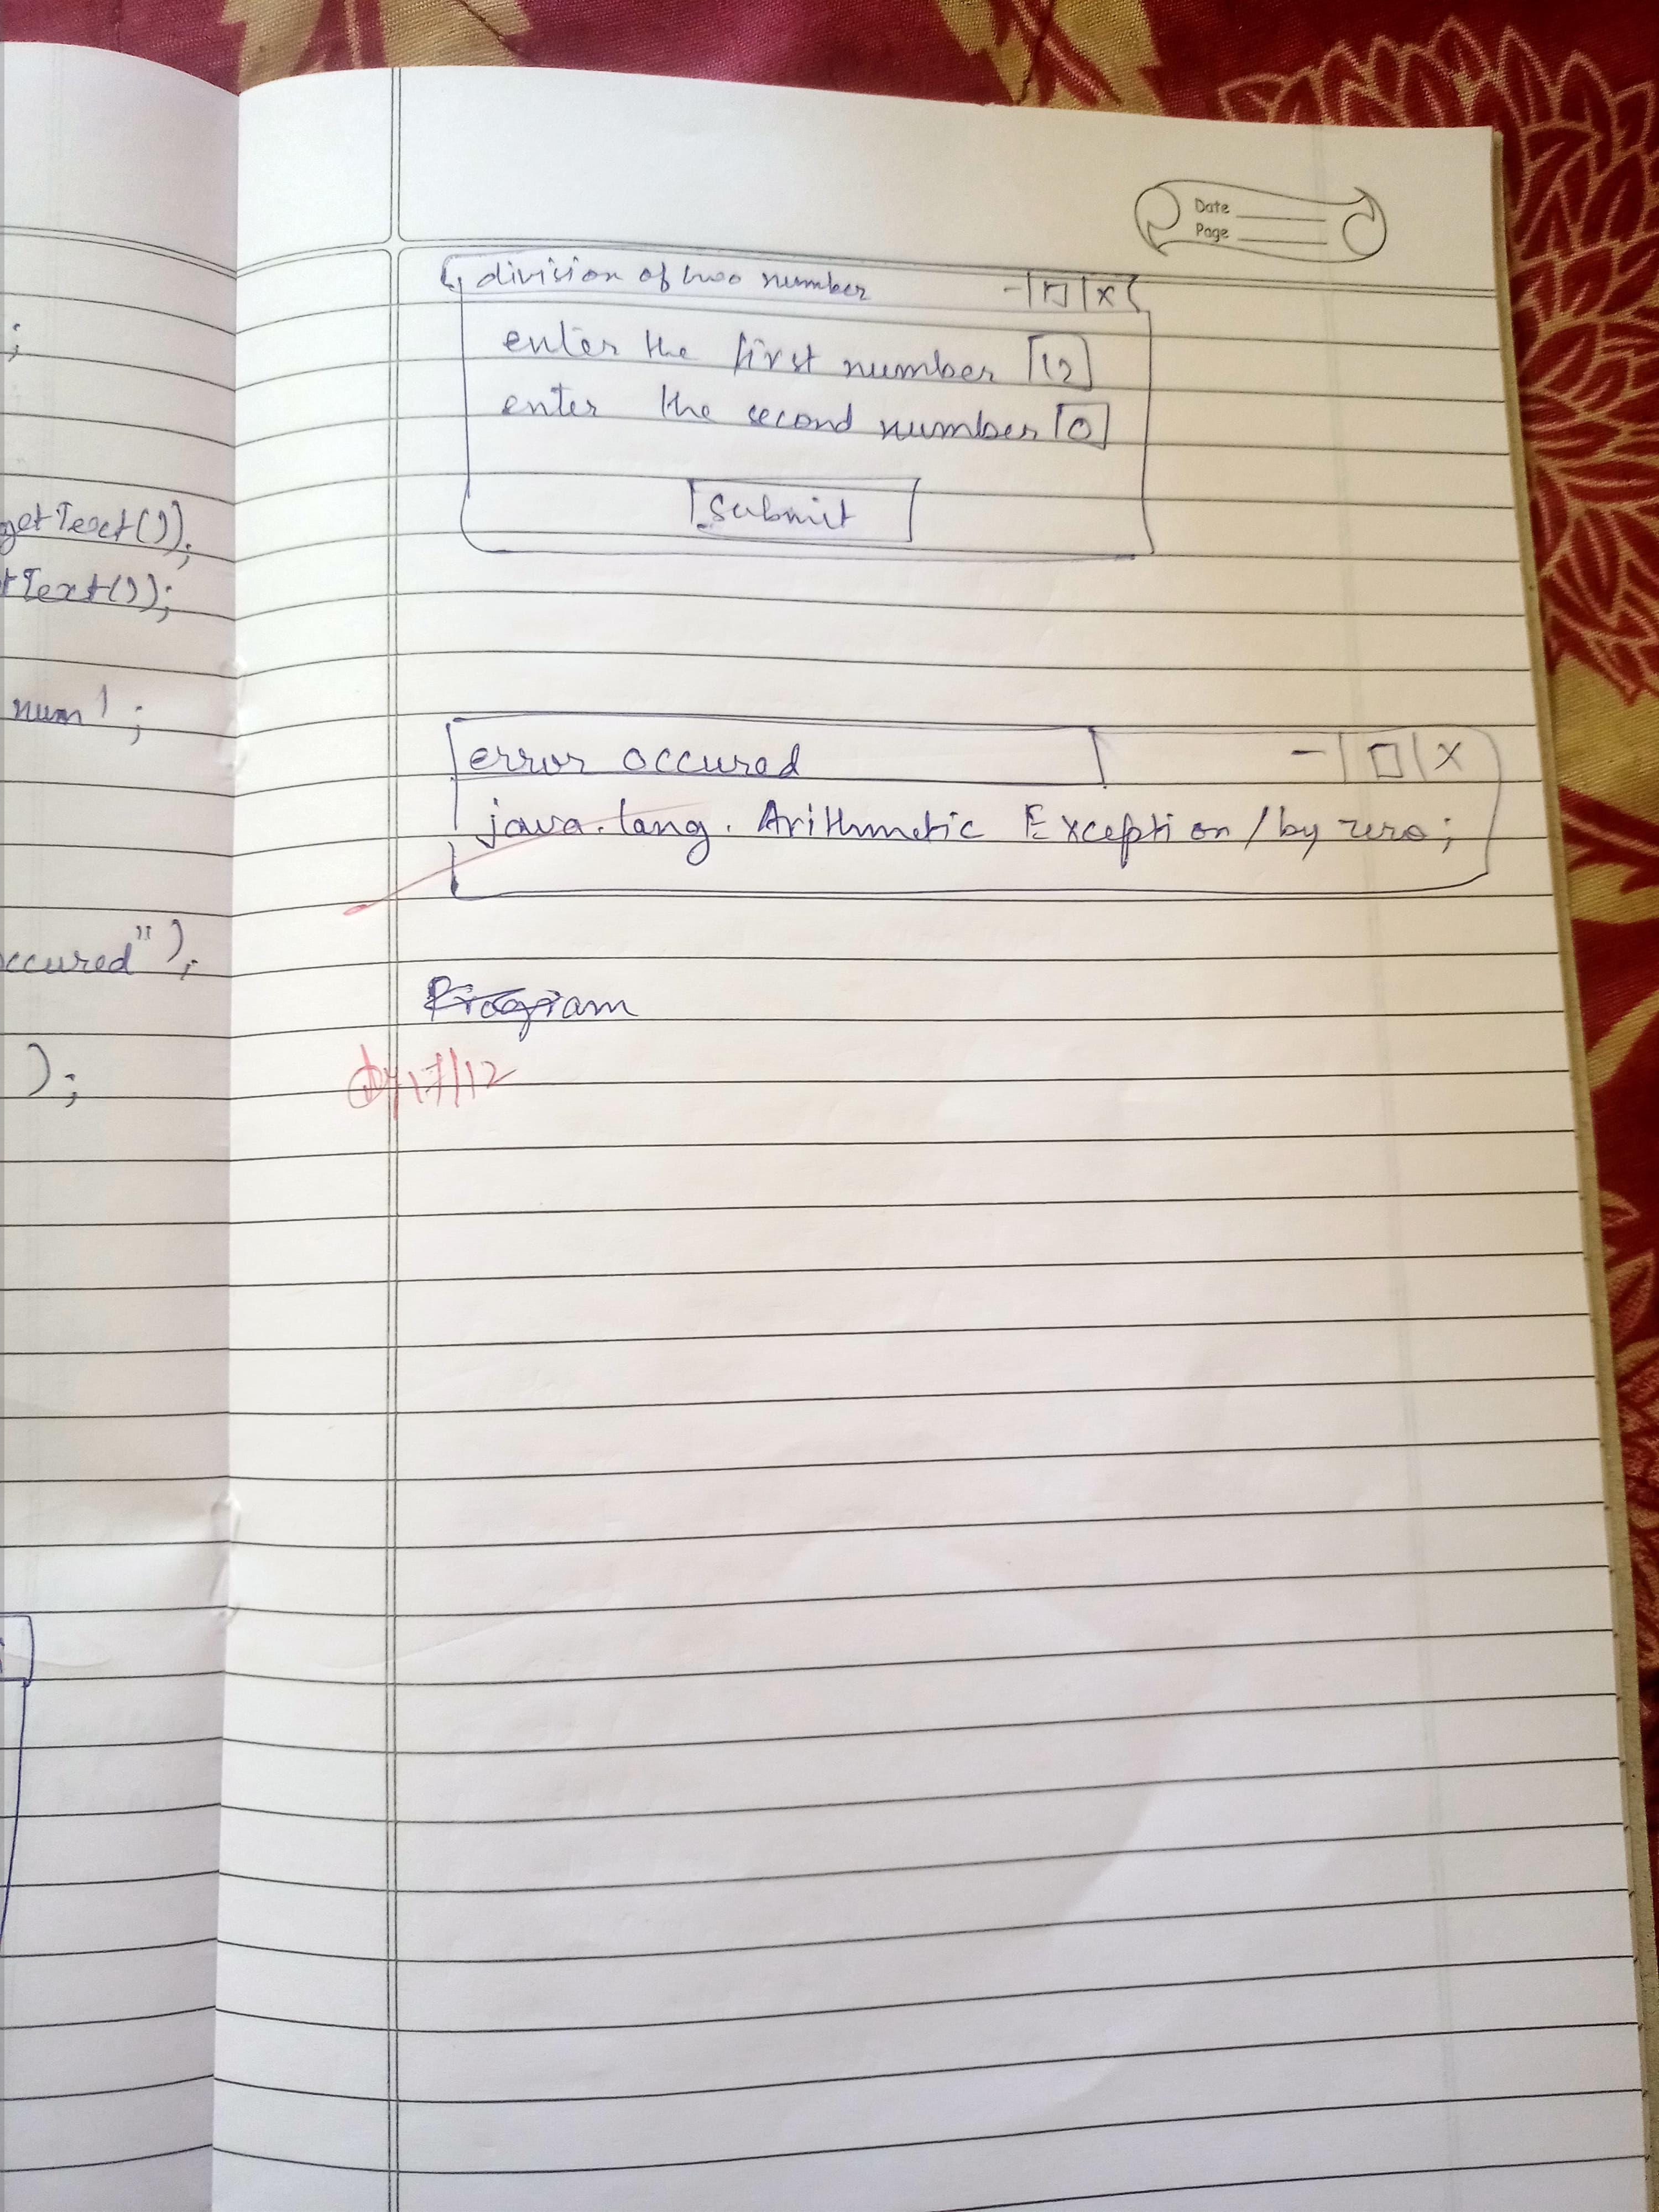 ;
getText());
tText());
num1;
occured");
);
Date
Page
division of two number - | □ | x
enter the first number 12
enter the second number 0
submit
error occured - | □ | x
java.lang.Arithmetic Exception / by zero;
Program
17/12